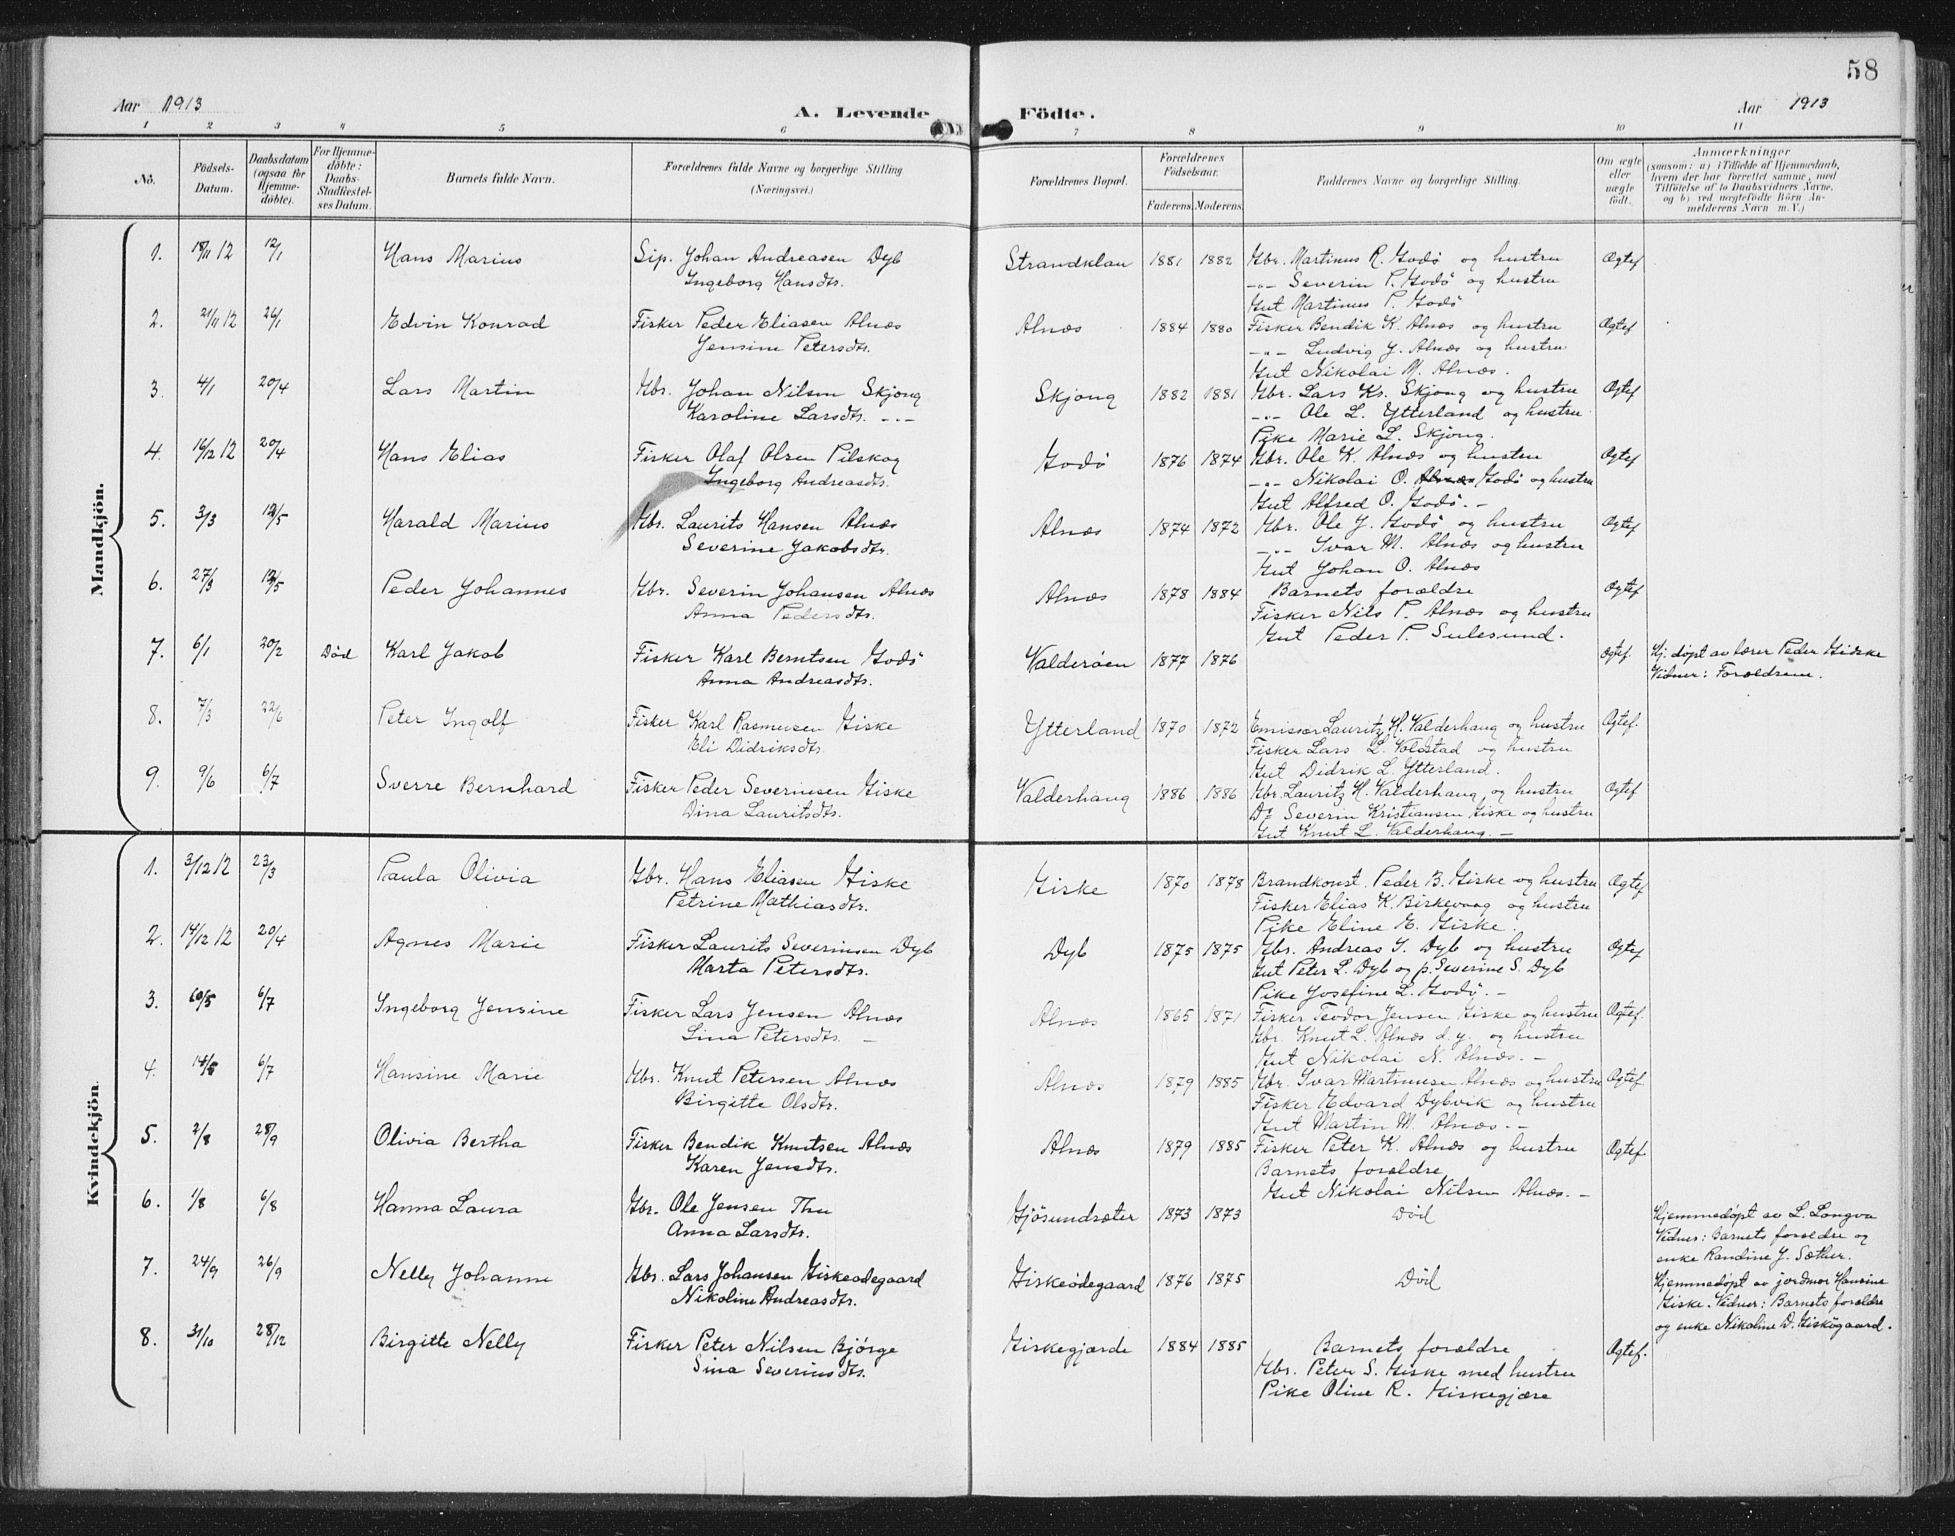 58
Aar 1913
A. Levende Födte.
Aar 1913
1 2 3 4 5 6 7 8 9 10 11
No.
Födsels-Datum.
Daabsdatum (ogsaa for Hjemme-döbte).
For Hjemme-döbte: Daabs-Stadfæstel-ses Datum.
Barnets fulde Navn.
Forældrenes fulde Navne og borgerlige Stilling (Næringsvei.)
Forældrenes Bopæl.
Forældrenes Födselsaar.
Faderens. Moderens.
Faddernes Navne og borgerlige Stilling.
Om ægte eller uægte födt.
Anmærkninger
(saasom: a) i Tilfælde af Hjemmedaab, hvem der har forrettet samme, med Tilföielse af to Daabsvidners Navne, og b) ved uægtefödte Börn An-melderens Navn m. V.)
Mandkjön.
1. 18/11 12 12/1 Hans Marius Sip. Johan Andreasen Dyb Strandklau 1881 1882 Gbr. Martinus R. Godö og hustru Ægtef
Ingeborg Hansdtr. -"- Severin P. Godö og hustru
Gut Martinus P. Godö
2. 21/11 12 26/1 Edvin Konrad Fisker Peder Eliasen Alnæs Alnæs 1884 1880 Fisker Bendik K. Alnæs og hustru Ægtef
Jensine Petersdtr. -"- Ludvig J. Alnæs og hustru
Gut Nikolai M. Alnæs.
3. 4/1 20/4 Lars Martin Gbr. Johan Nilsen Skjong Skjong 1882 1881 Gbr. Lars Kr. Skjong og hustru Ægtef
Karoline Larsdtr. -"- -"- Ole L. Ytterland og hustru
Pike Marie L. Skjong.
4. 16/12 12 20/4 Hans Elias Fisker Olaf Olsen Pilskog Godö 1876 1874 Gbr. Ole K. Alnæs og hustru Ægtef
Ingeborg Andreasdtr. -"- Nikolai O. Alnæs Godö og hustru
Gut Alfred O. Godö. -
5. 3/3 12/5 Harald Marius Gbr. Laurits Hansen Alnæs Alnæs 1874 1872 Gbr. Ole J. Godö og hustru Ægtef
Severine Jakobsdtr. -"- Ivar M. Alnæs og hustru
Gut Johan O. Alnæs
6. 27/3 12/5 Peder Johannes Gbr. Severin Johansen Alnæs Alnæs 1878 1884 Barnets forældre Ægtef
Anna Pedersdtr. Fisker Nils P. Alnæs og hustru
Gut Peder P. Sulesund.
7. 6/1 20/2 Död Karl Jakob Fisker Karl Berntsen Godö Valderöen 1877 1876 Ægtef. Hj. döpt av lærer Peder Giske
Anna Andreasdtr. Vidner: Forældrene.
8. 7/3 22/6 Peter Ingolf Fisker Karl Rasmusen Giske Ytterland 1870 1872 Emissær Lauritz H. Valderhaug og hustru Ægtef.
Eli Didriksdtr. Fisker Lars L. Voldstad og hustru
Gut Didrik L. Ytterland.
9. 9/6 6/7 Sverre Bernhard Fisker Peder Severinsen Giske Valderhaug 1886 1886 Gbr. Lauritz H. Valderhaug og hustru Ægtef
Dina Lauritsdtr. Do Severin Kristiansen Giske og hustru
Gut Knut L. Valderhaug. -
Kvindekjön.
1. 3/12 12 23/3 Paula Olivia Gbr. Hans Eliasen Giske Giske 1870 1878 Brandkonst. Peder B. Giske og hustru Ægtef
Petrine Mathiasdtr. Fisker Elias K. Birkevaag og hustru
Pike Eline E. Giske.
2. 14/12 12 20/4 Agnes Marie Fisker Laurits Severinsen Dyb Dyb 1875 1875 Gbr. Andreas S. Dyb og hustru Ægtef
Marta Petersdtr. Gut Peter L. Dyb og p. Severine S. Dyb
Pike Josefine L. Godö. -
3. 10/5 6/7 Ingeborg Jensine Fisker Lars Jensen Alnæs Alnæs 1865 1871 Fisker Teodor Jensen Giske og hustru Ægtef.
Lina Petersdtr. - Gbr. Knut L. Alnæs d.y. og hustru
Gut Nikolai N. Alnæs. -
4. 14/5 6/7 Hansine Marie Gbr. Knut Petersen Alnæs Alnæs 1879 1885 Gbr. Ivar Martinusen Alnæs og hustru Ægtef
Birgitte Olsdtr. Fisker Edvard Dybvik og hustru
Gut Martin M. Alnæs. -
5. 2/8 28/9 Olivia Bertha Fisker Bendik Knutsen Alnæs Alnæs 1879 1885 Fisker Peter K. Alnæs og hustru Ægtef
Karen Jensdtr. Barnets forældre
Gut Nikolai Nilsen Alnæs. -
6. 1/8 6/8 Hanna Laura Gbr. Ole Jensen Thu Gjösundsæter 1873 1873 Död Hjemmedöpt av L. Longva
Anna Larsdtr. Vidner: Barnets forældre og
enke Randine J. Sæther.
7. 24/9 26/9 Nelly Johanne Gbr. Lars Johansen Giskeödegaard Giskeödegaard 1876 1875 Död Hjemmedöpt av jordmor Hansine
Nikoline Andreasdtr. Giske. Vidner: Barnets forældre
og enke Nikoline D. Giskögaard.
8. 31/10 28/12 Birgitte Nelly Fisker Peter Nilsen Bjørge Giskegjærde 1884 1885 Barnets forældre Ægtef.
Sina Severinsdtr. Gbr. Peter S. Giske med hustru
Pike Oline R. Giskegjære